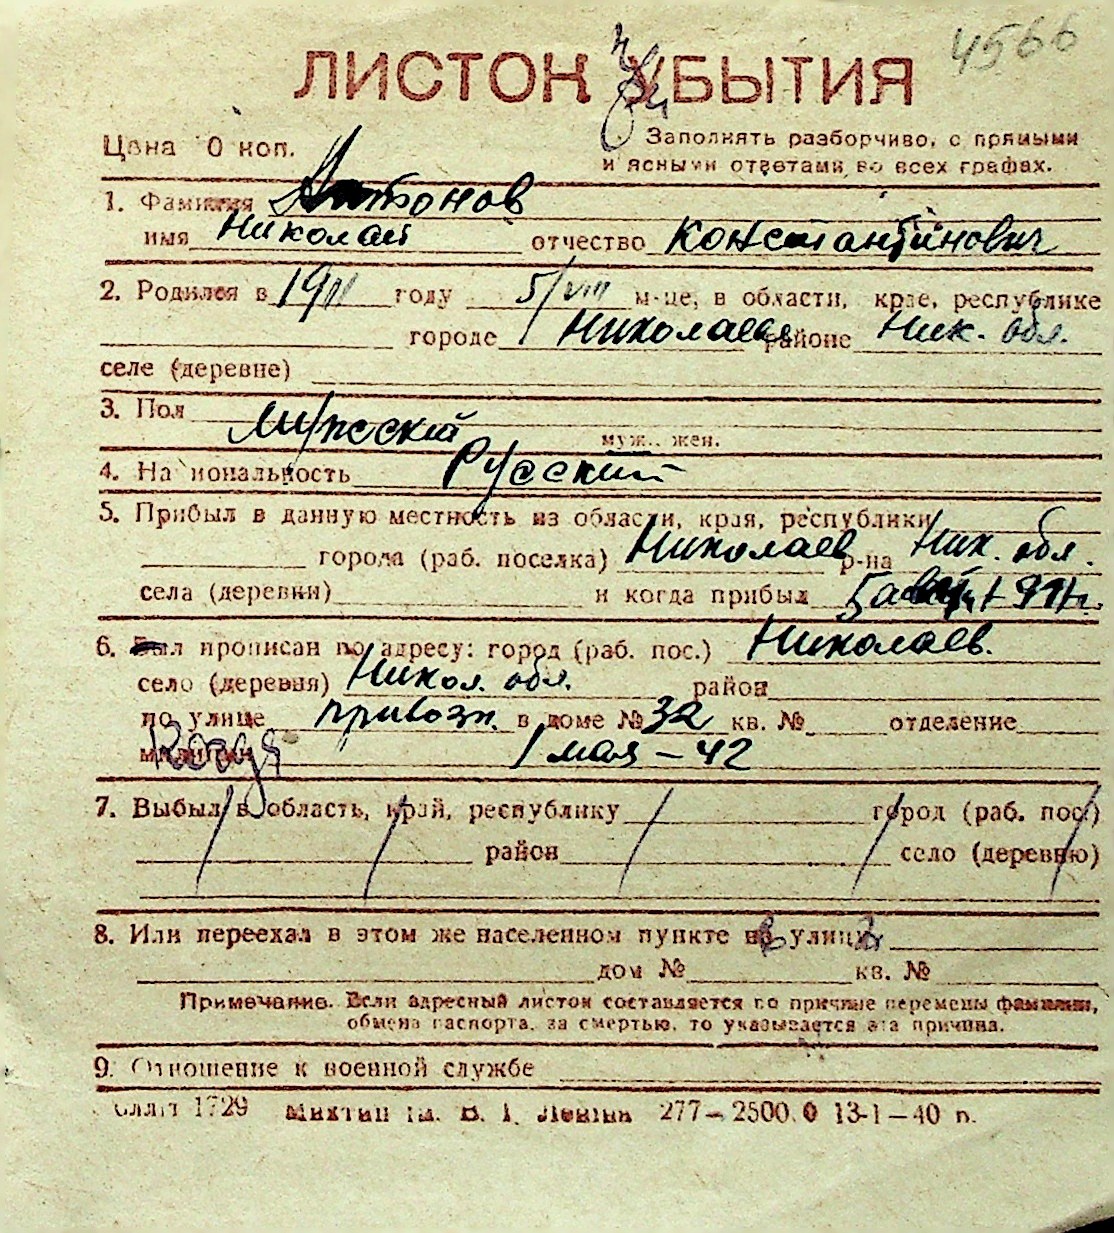 4566
ЛИСТОК УБЫТИЯ
Цена 0 коп.
Заполнять разборчиво, с прямыми
и ясными ответами во всех графах.
1. Фамилия Антонов
имя Николай отчество Константинович
2. Родился в 1911 году 5/VIII м-це, в области, крае, республике
городе Николаев районе Ник. обл.
селе (деревне)
3. Пол Мужский
муж., жен.
4. Национальность Русский
5. Прибыл в данную местность из области, края, республики
города (раб. поселка) Николаев р-на Ник. обл.
села (деревни) и когда прибыл
6. Был прописан по адресу: город (раб. пос.) Николаев.
село (деревня) Никол. обл. район
по улице Привозн. в доме № 32 кв. № отделение
милиции 1 мая – 42
7. Выбыл в область, край, республику город (раб. пос.)
район село (деревню)
8. Или переехал в этом же населенном пункте в улицу
дом № кв. №
Примечание. Если адресный листок составляется по причине перемены фамилии,
обмена паспорта, за смертью, то указывается эта причина.
9. Отношение к военной службе
1729 277—2500.0 13-1—40 п.